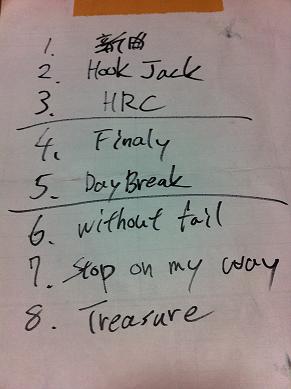 1. 新曲
2. Hook Jack
3. HRC
4. Finaly
5. DayBreak
6. without fail
7. Stop on my way
8. Treasure